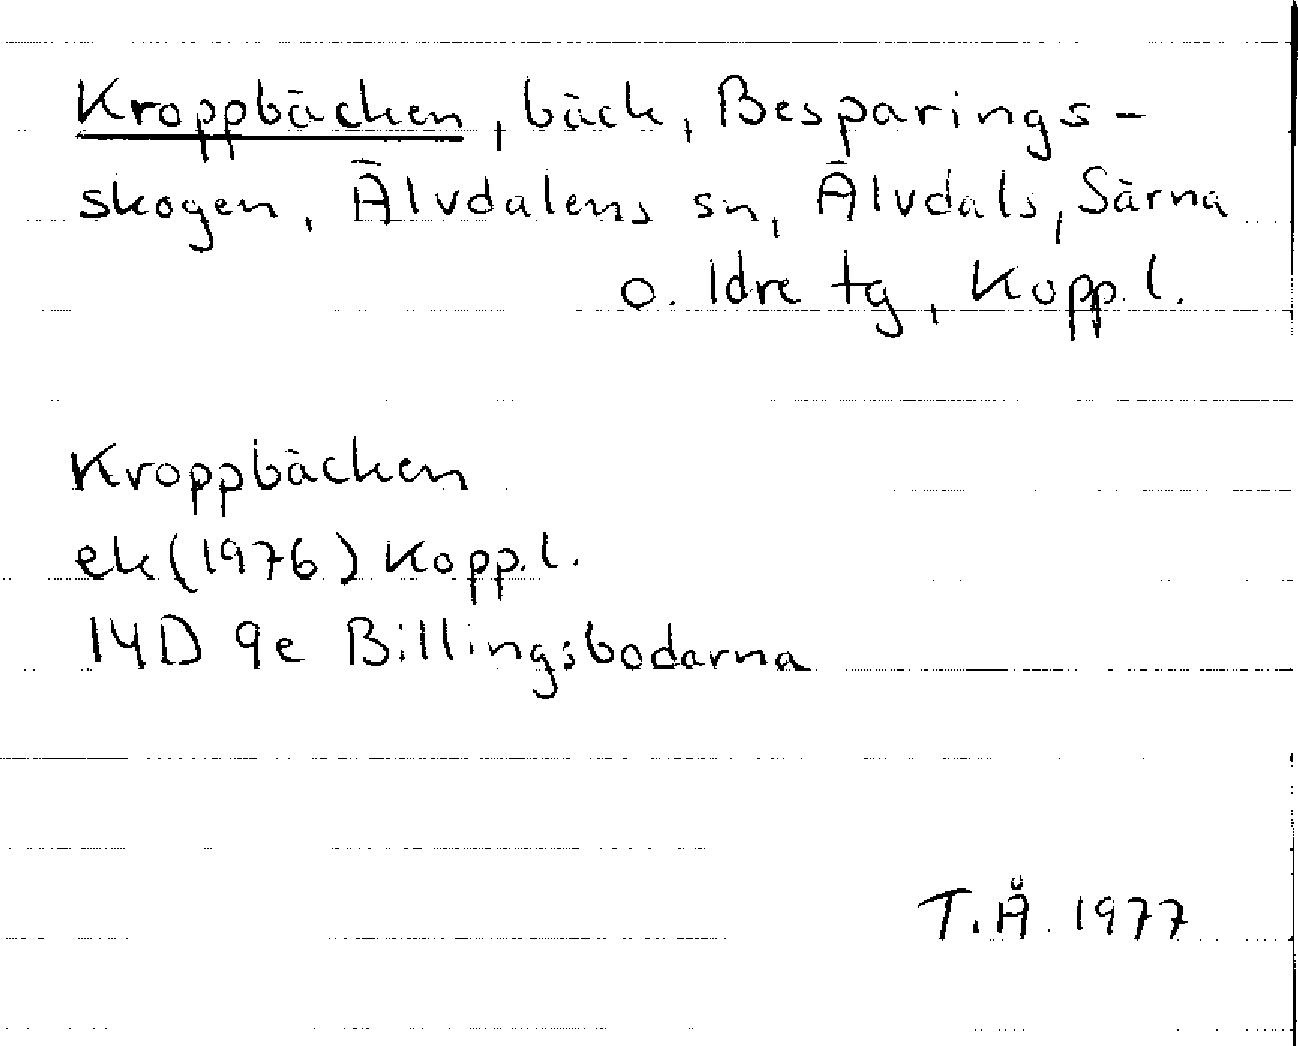 Kroppbäcken, bäck, Besparings-
skogen, Älvdalens sn, Älvdals, Särna
o. Idre tg, Kopp. l.
Kroppbäcken
ek (1976) Kopp. l.
14D 9e Billingsbodarna
T. Å. 1977